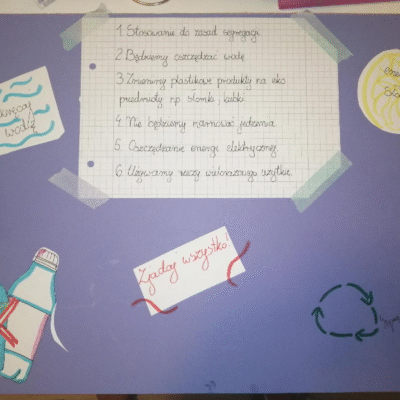 1 Stosowanie do zasad segregacji
2 Będziemy oszczędzać wodę
3 Zmienimy plastikowe produkty na eko
przedmioty np słomki, kubki
4 Nie będziemy marnować jedzenia
5 Oszczędzanie energi elektrycznej
6 Używamy rzeczy wielorazowego użytku.
wodę
Zjadaj wszystko!